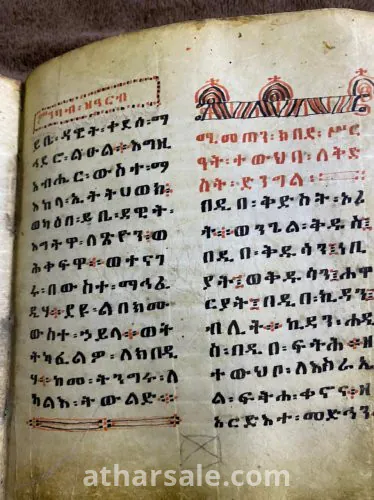 ምንባብ፡ ዘዓርብ
ይቤ፡ ዳዊት፡ ቀደሰ፡ ማ
ኅደሮ፡ ልዑል፡ እግዚ
አብሔር፡ ውስተ፡ ማ
እከላ፡ ኢትትህወክ፡
ወካዕበ፡ ይቤ፡ ዳዊት፡
ዕግትዋ፡ ለጽዮን፡ ወ
ሕቀፍዋ፡ ወተናገ
ሩ፡ በውስተ፡ ማኅፈ
ዲሃ፡ ደዩ፡ ልበክሙ
ውስተ፡ ኃይላ፡ ወት
ትካፈልዎ፡ ለክበዲ
ሃ፡ ከመ፡ ትንግሩ፡ ለ
ካልእ፡ ትውልድ፡
ሚመጠን፡ ክብደ፡ ሥር
ዓት፡ ተውህበ፡ ለቅድ
ስት፡ ድንግል፡
በዲበ፡ ቅድሳት፡ ኦሪ
ት፡ ወንጌል፡ ቅዱስ
በዲበ፡ ቅዱሳን፡ ነቢ
ያት፡ ወቅዱሳን፡ ሐዋ
ርያት፡ በዲበ፡ ኪዳን፡
ብሊት፡ ኪዳን፡ ሐዲ
ስ፡ በዲበ፡ ፍትሕ፡ ዘ
ተውህቦ፡ ለእስራኤ
ል፡ ፍትሐ፡ ቀኖና፡ ዘ
አርድእተ፡ መድኅን
atharsale.com